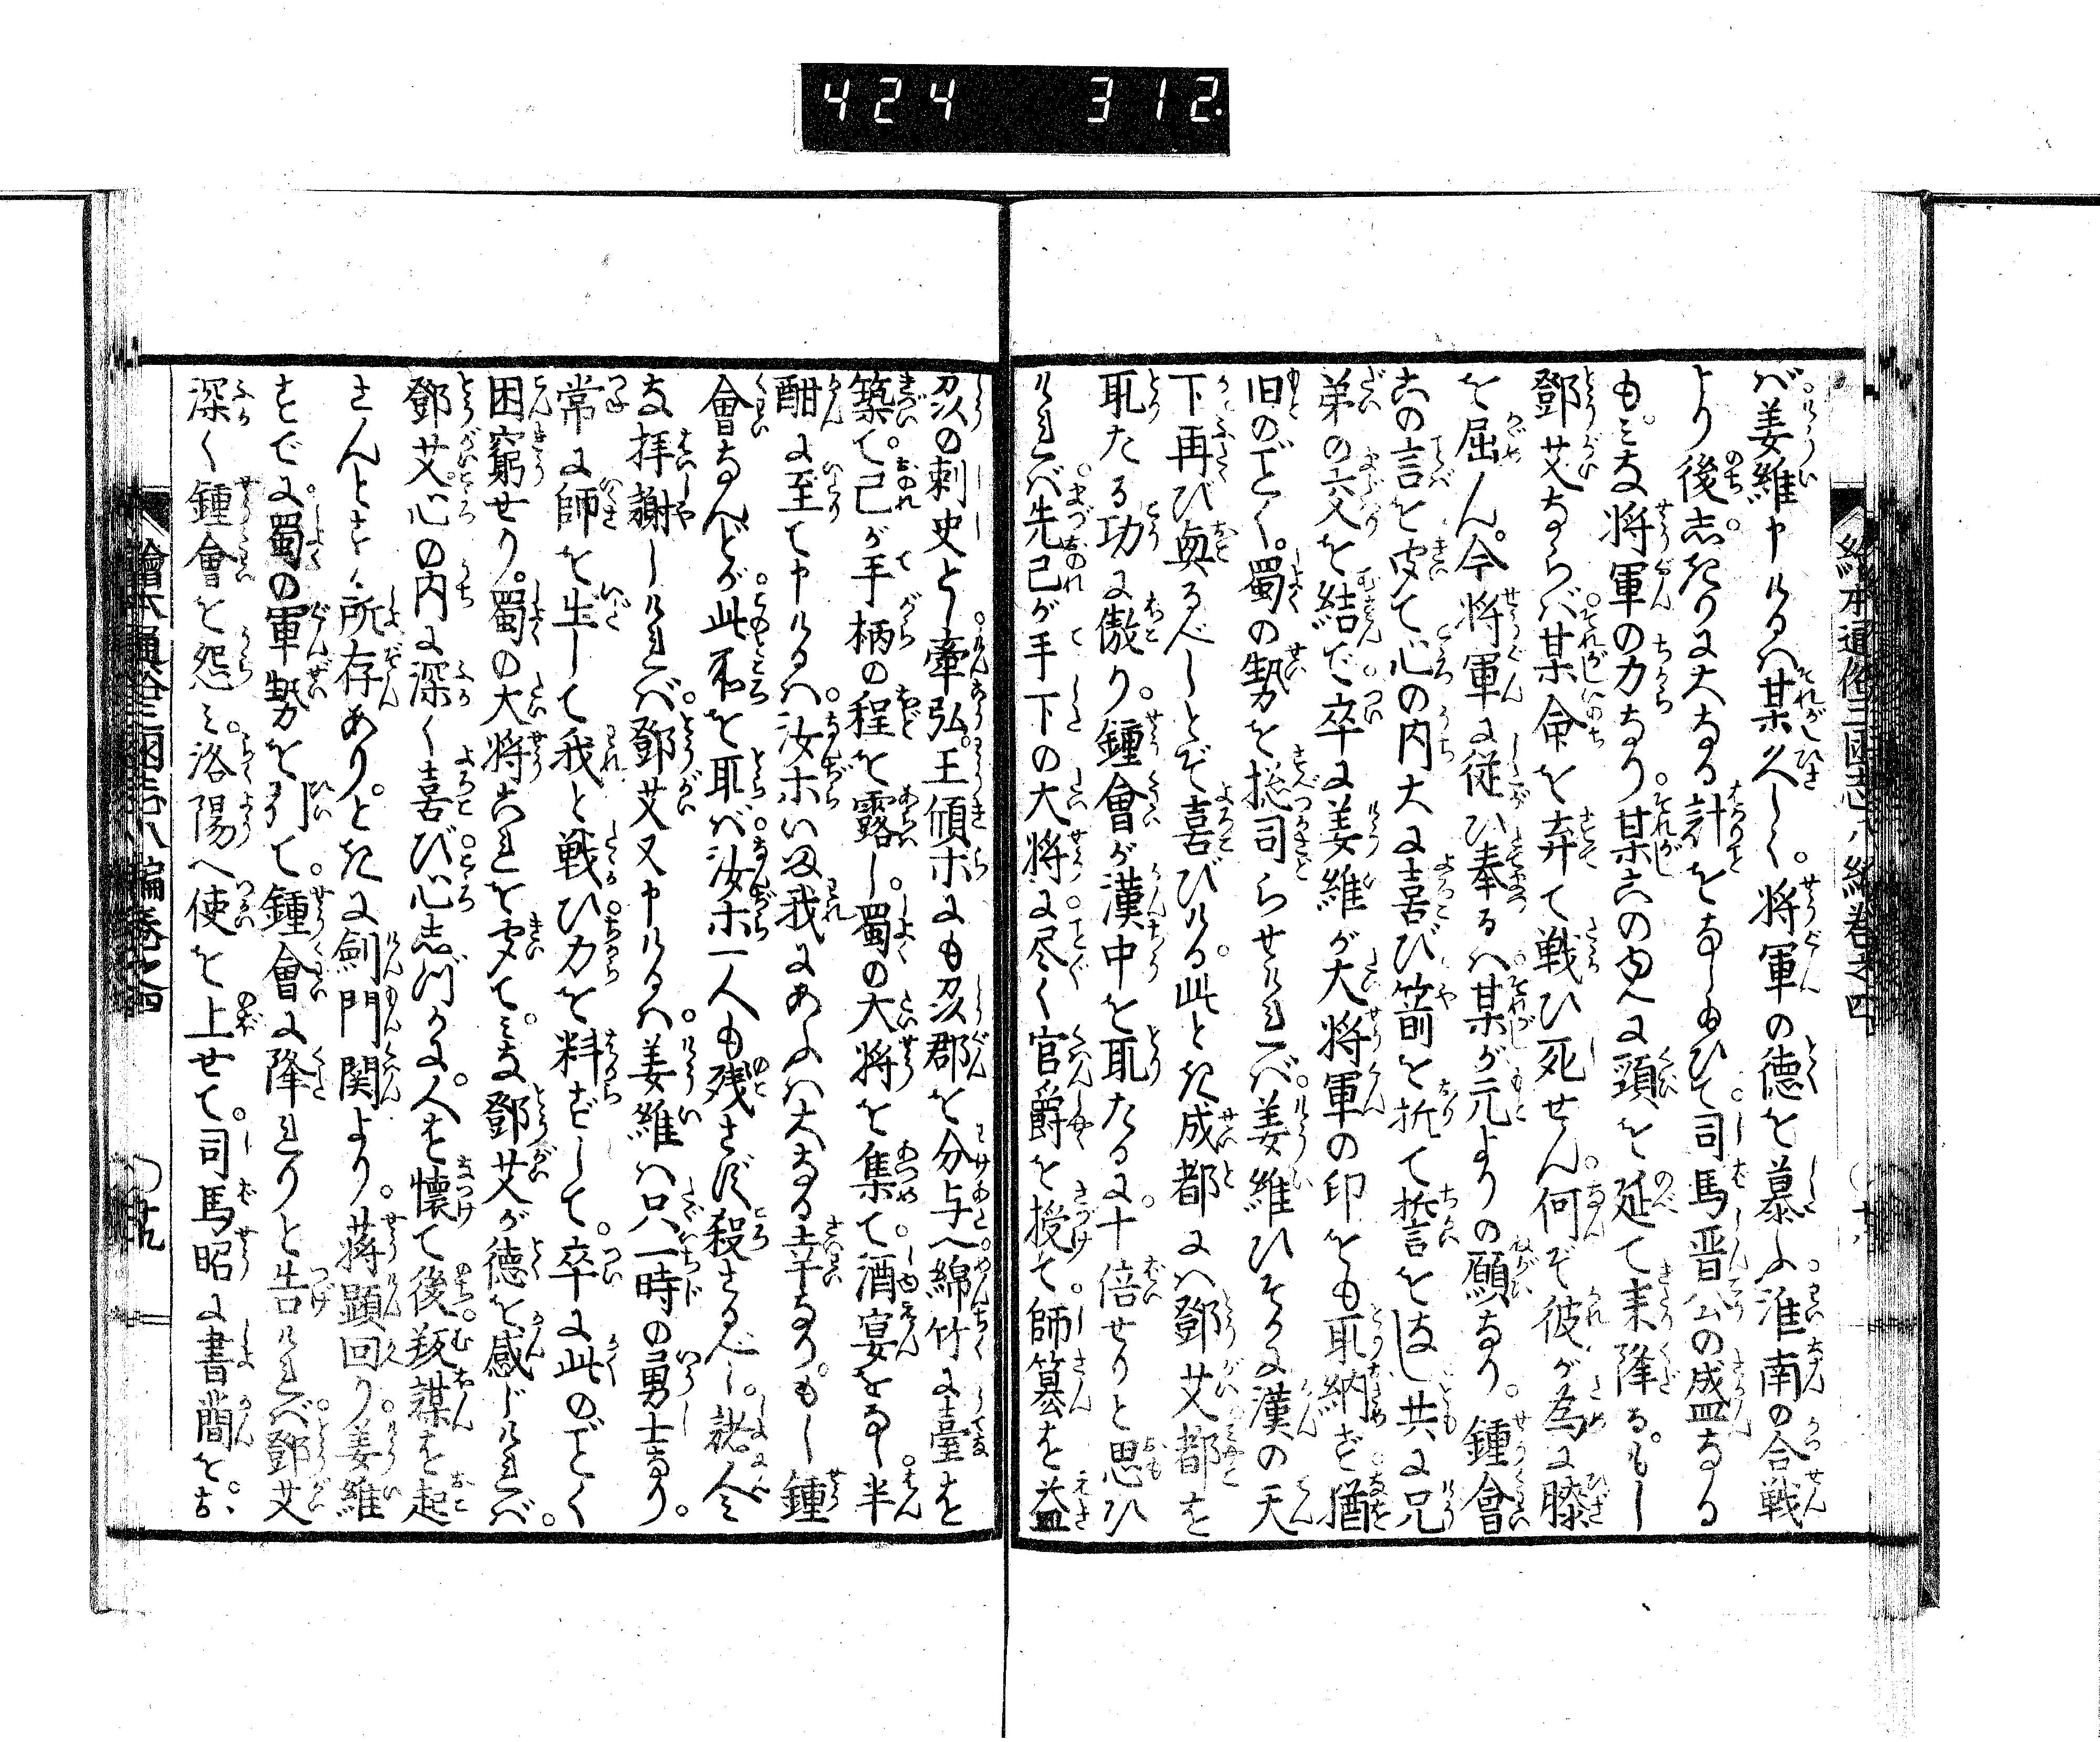 424 312.
繪本通俗三國志八編巻之四
ば姜維申けるハ某久しく将軍の徳を慕ふ淮南の合戦
より後志きりに大なる計をなしゐひて司馬晋公の盛なる
も。ミな将軍の力なり某このゆへに頸を延て来降る。もし
鄧艾ならバ某命を弃て戦ひ死せん何ぞ彼が為に膝
を屈ん。今将軍に従ひ奉るハ某が元よりの願なり。鍾會
この言を聞て心の内大に喜び箭を折て誓をはし共に兄
弟の交を結で卒に姜維が大将軍の印をも取納ず猶
旧のごとく。蜀の勢を捴司らせけれバ。姜維ひそかに漢の天
下再び興るべしとぞ喜びける。此とき成都にハ鄧艾都を
取たる功に傲り。鍾會が漢中を取たるに。十倍せりと思ひ
けれバ先己が手下の大将に尽く官爵を授て。師纂を益
州の刺史とし牽弘。王傾ホにも州郡を分与へ綿竹に臺を
築て。己が手柄の程を露し。蜀の大将を集て。酒宴をなし半
酣に至て申けるハ。汝ホい幻我にあふハ大なる幸なり。もし鍾
會なんどが此所を取バ汝ホ一人も残さず殺さるべし。諸人ミ
な拝謝しけれバ。鄧艾又申けるハ。姜維ハ只一時の勇士なり。
常に師を出して我と戦ひ力を料ずして。卒に此のごとく
困窮せり。蜀の大将これを聞て。ミな鄧艾が徳を感じけれバ。
鄧艾心の内に深く喜び心志づかに。人を懐て後叛謀を起
さんとする所存あり。ときに劍門関より。蒋顕回り。姜維
すでに蜀の軍勢を引て。鍾會に降れりと告けれバ。鄧艾
深く鍾會を怨ミ。洛陽へ使を上せて。司馬昭に書簡を
繪本通俗三國志八編巻之四